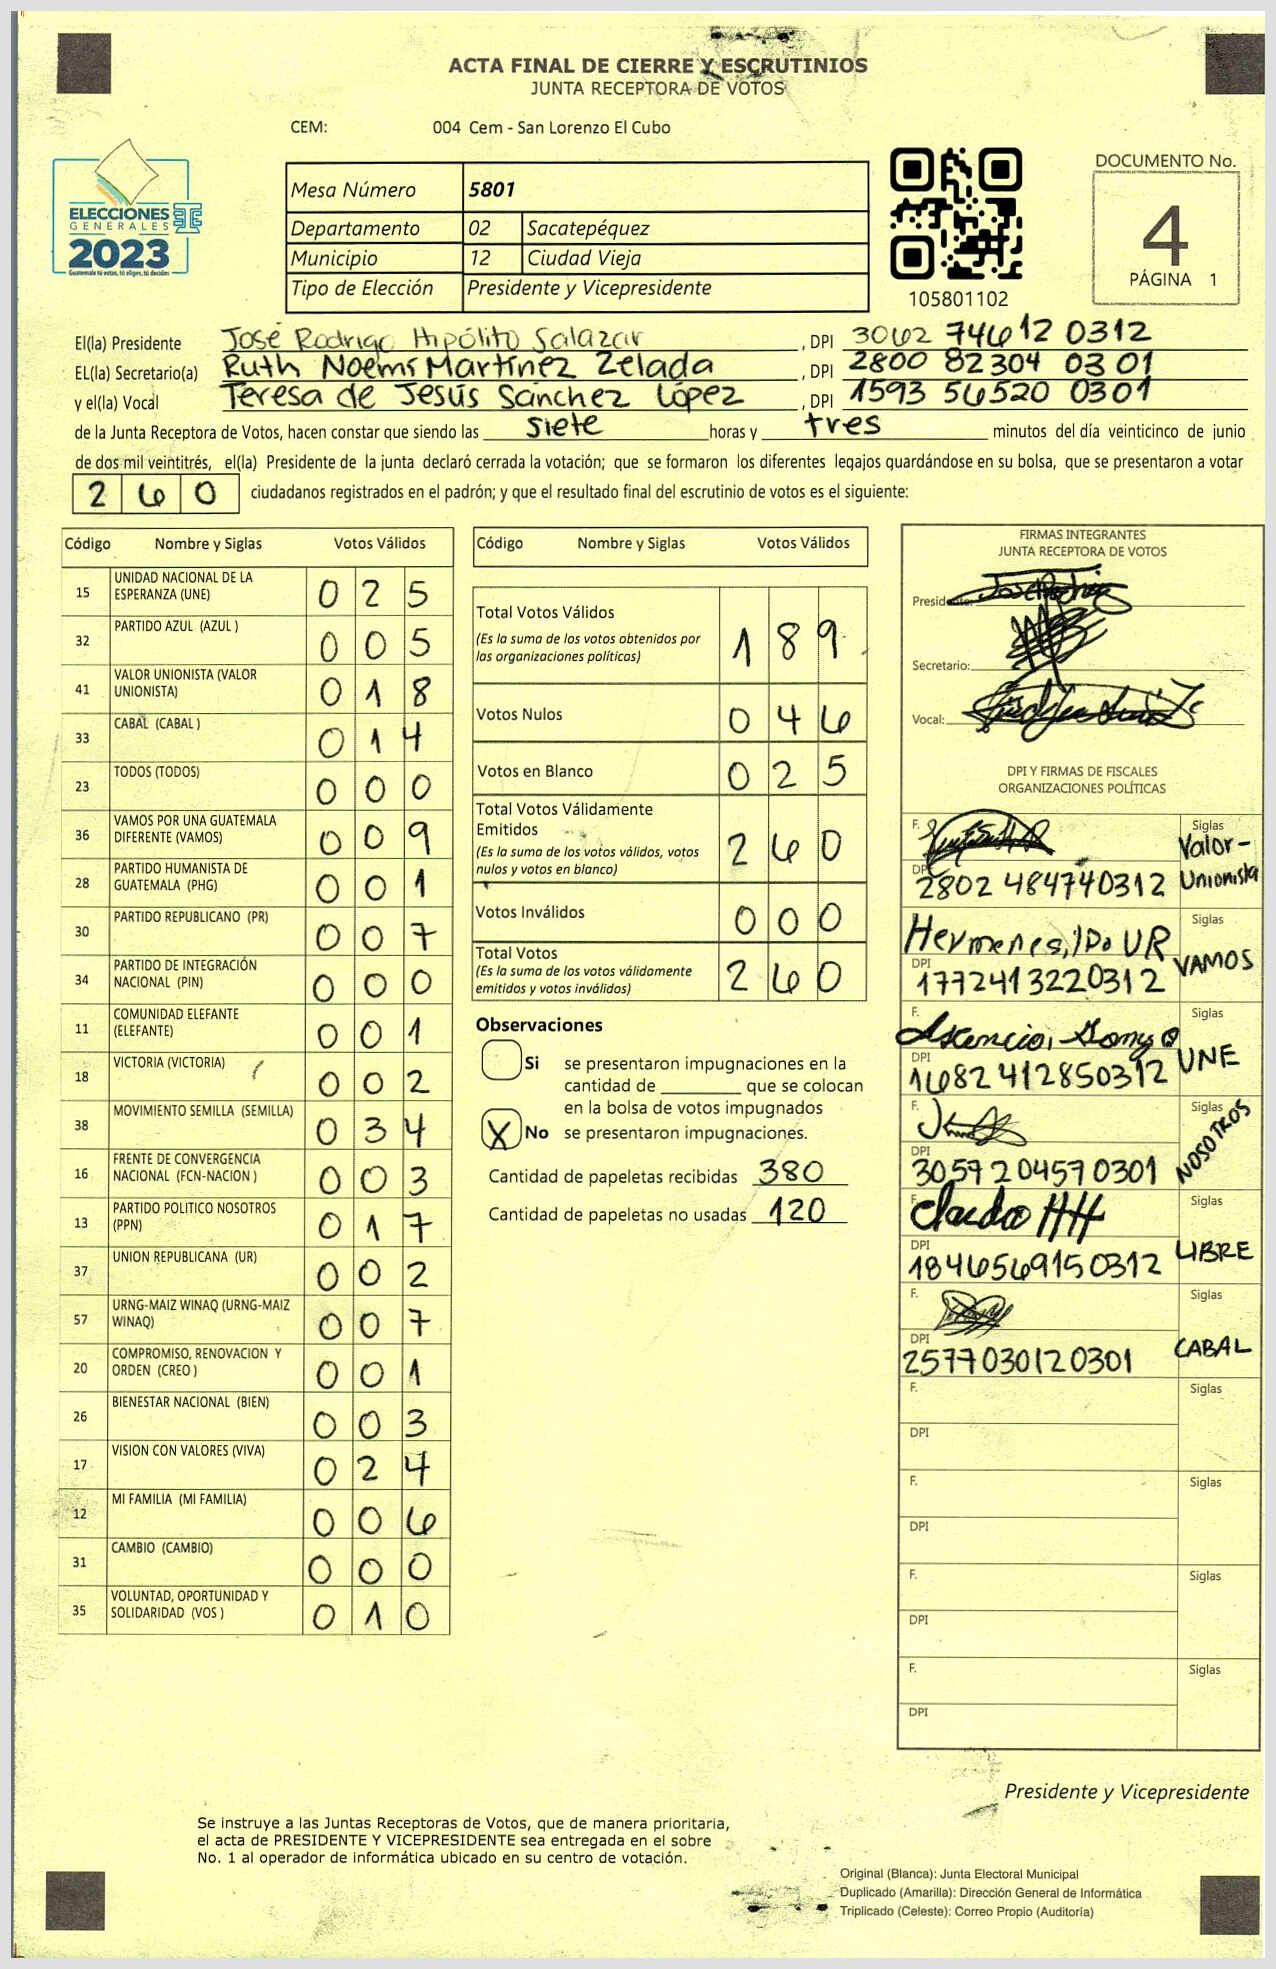 ACTA FINAL DE CIERRE Y ESCRUTINIOS
JUNTA RECEPTORA DE VOTOS
CEM: 004 Cem - San Lorenzo El Cubo
ELECCIONES
GENERALES
2023
Guatemala tú votas, tú eliges, tú decides
Mesa Número 5801
Departamento 02 Sacatepéquez
Municipio 12 Ciudad Vieja
Tipo de Elección Presidente y Vicepresidente
105801102
DOCUMENTO No.
4
PÁGINA 1
El(la) Presidente José Rodrigo Hipólito Salazar, DPI 3062 74612 0312
EL(la) Secretario(a) Ruth Noemí Martínez Zelada, DPI 2800 82304 0301
y el(la) Vocal Teresa de Jesús Sánchez López, DPI 1593 56520 0301
de la Junta Receptora de Votos, hacen constar que siendo las siete horas y tres minutos del día veinticinco de junio
de dos mil veintitrés, el(la) Presidente de la junta declaró cerrada la votación; que se formaron los diferentes legajos guardándose en su bolsa, que se presentaron a votar
2 6 0 ciudadanos registrados en el padrón; y que el resultado final del escrutinio de votos es el siguiente:
Código Nombre y Siglas Votos Válidos
15 UNIDAD NACIONAL DE LA ESPERANZA (UNE) 0 2 5
32 PARTIDO AZUL (AZUL ) 0 0 5
41 VALOR UNIONISTA (VALOR UNIONISTA) 0 1 8
33 CABAL (CABAL ) 0 1 4
23 TODOS (TODOS) 0 0 0
36 VAMOS POR UNA GUATEMALA DIFERENTE (VAMOS) 0 0 9
28 PARTIDO HUMANISTA DE GUATEMALA (PHG) 0 0 1
30 PARTIDO REPUBLICANO (PR) 0 0 7
34 PARTIDO DE INTEGRACIÓN NACIONAL (PIN) 0 0 0
11 COMUNIDAD ELEFANTE (ELEFANTE) 0 0 1
18 VICTORIA (VICTORIA) 0 0 2
38 MOVIMIENTO SEMILLA (SEMILLA) 0 3 4
16 FRENTE DE CONVERGENCIA NACIONAL (FCN-NACION ) 0 0 3
13 PARTIDO POLITICO NOSOTROS (PPN) 0 1 7
37 UNION REPUBLICANA (UR) 0 0 2
57 URNG-MAIZ WINAQ (URNG-MAIZ WINAQ) 0 0 7
20 COMPROMISO, RENOVACION Y ORDEN (CREO ) 0 0 1
26 BIENESTAR NACIONAL (BIEN) 0 0 3
17 VISION CON VALORES (VIVA) 0 2 4
12 MI FAMILIA (MI FAMILIA) 0 0 6
31 CAMBIO (CAMBIO) 0 0 0
35 VOLUNTAD, OPORTUNIDAD Y SOLIDARIDAD (VOS ) 0 1 0
Código Nombre y Siglas Votos Válidos
Total Votos Válidos 1 8 9
(Es la suma de los votos obtenidos por
las organizaciones políticas)
Votos Nulos 0 4 6
Votos en Blanco 0 2 5
Total Votos Válidamente
Emitidos 2 6 0
(Es la suma de los votos válidos, votos
nulos y votos en blanco)
Votos Inválidos 0 0 0
Total Votos 2 6 0
(Es la suma de los votos válidamente
emitidos y votos inválidos)
Observaciones
Si se presentaron impugnaciones en la
cantidad de ________ que se colocan
en la bolsa de votos impugnados
X No se presentaron impugnaciones.
Cantidad de papeletas recibidas 380
Cantidad de papeletas no usadas 120
FIRMAS INTEGRANTES
JUNTA RECEPTORA DE VOTOS
Presidente:
Secretario:
Vocal:
DPI Y FIRMAS DE FISCALES
ORGANIZACIONES POLÍTICAS
F. Siglas Valor-Unionista
DPI 2802 484740312
Siglas VAMOS
DPI 1772413220312
F. Siglas UNE
DPI 1682412850312
F. Siglas NOSOTROS
DPI 3057204570301
F. Siglas LIBRE
DPI 1846569150312
F. Siglas CABAL
DPI 2577030120301
F. Siglas
DPI
F. Siglas
DPI
F. Siglas
DPI
F. Siglas
DPI
Presidente y Vicepresidente
Se instruye a las Juntas Receptoras de Votos, que de manera prioritaria,
el acta de PRESIDENTE Y VICEPRESIDENTE sea entregada en el sobre
No. 1 al operador de informática ubicado en su centro de votación.
Original (Blanca): Junta Electoral Municipal
Duplicado (Amarilla): Dirección General de Informática
Triplicado (Celeste): Correo Propio (Auditoría)